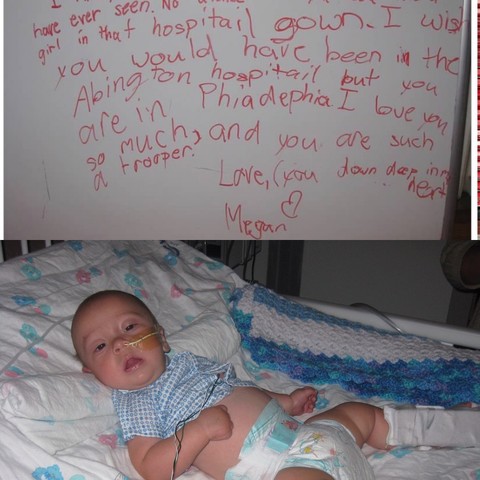 have ever seen. No
girl in that hospitail gown. I wish
you would have been in the
Abington hospitail but you
are in Phiadephia I love you
so much, and you are such
a trooper.
Love, (you down deep in my
heart
Megan